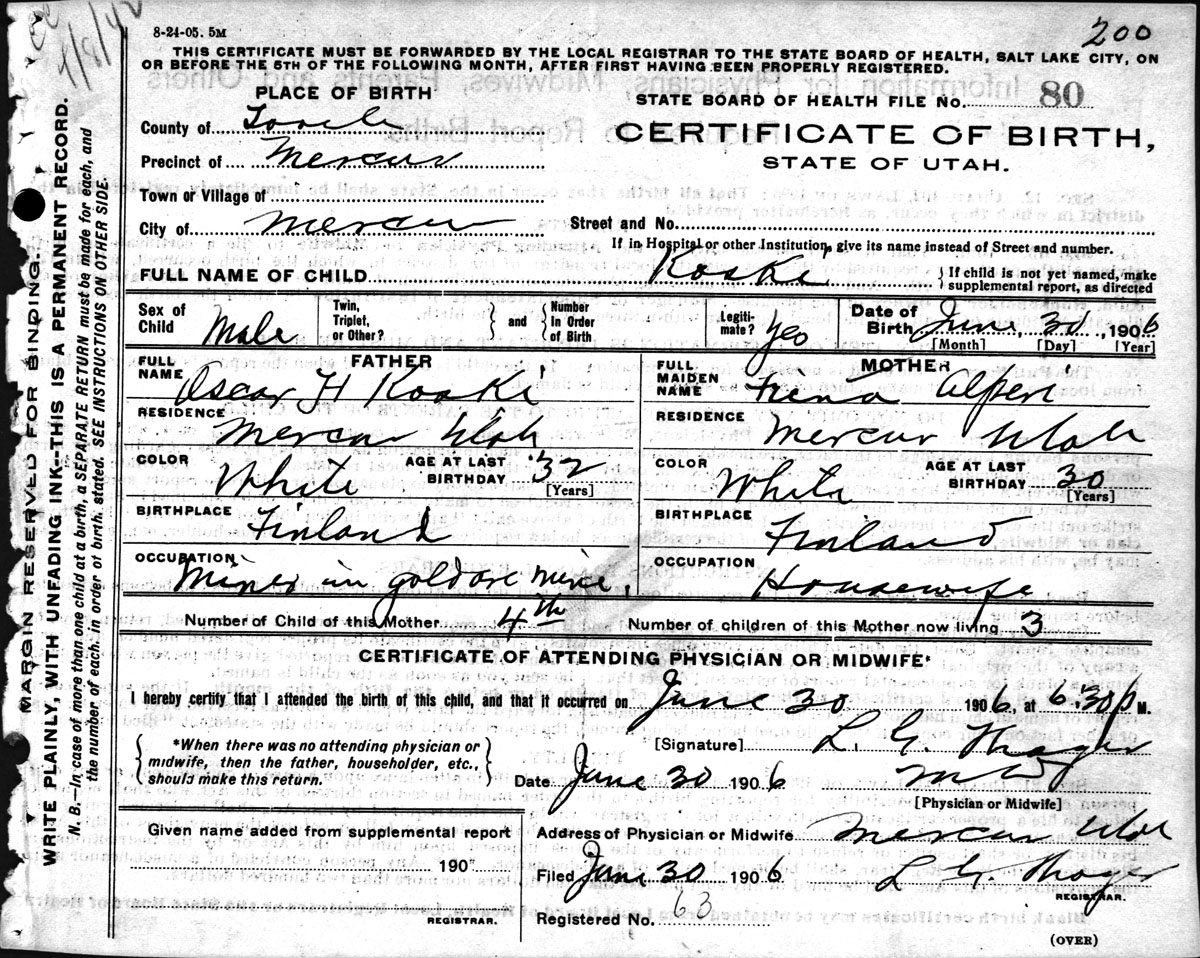 4/8/42
8-24-05. 5M
200
THIS CERTIFICATE MUST BE FORWARDED BY THE LOCAL REGISTRAR TO THE STATE BOARD OF HEALTH, SALT LAKE CITY, ON
OR BEFORE THE 5TH OF THE FOLLOWING MONTH, AFTER FIRST HAVING BEEN PROPERLY REGISTERED.
PLACE OF BIRTH
STATE BOARD OF HEALTH FILE No. 80
County of Tooele
CERTIFICATE OF BIRTH,
Precinct of Mercur
STATE OF UTAH.
Town or Village of
City of Mercur
Street and No.
If in Hospital or other Institution, give its name instead of Street and number.
FULL NAME OF CHILD Koski
If child is not yet named, make
supplemental report, as directed
Sex of Child Male
Twin, Triplet, or Other?
and
Number In Order of Birth
Legiti- mate? Yes
Date of Birth June, 30, 1906
[Month] [Day] [Year]
FATHER
MOTHER
FULL NAME Oscar H Koski
FULL MAIDEN NAME Alperi
RESIDENCE Mercur Utah
RESIDENCE Mercur Utah
COLOR White AGE AT LAST BIRTHDAY 32 [Years]
COLOR White AGE AT LAST BIRTHDAY 30 [Years]
BIRTHPLACE Finland
BIRTHPLACE Finland
OCCUPATION Miner in gold ore mine.
OCCUPATION Housewife
Number of Child of this Mother 4th
Number of children of this Mother now living 3
CERTIFICATE OF ATTENDING PHYSICIAN OR MIDWIFE*
I hereby certify that I attended the birth of this child, and that it occurred on June 30 1906, at 6:30 P M.
*When there was no attending physician or
midwife, then the father, householder, etc.,
should make this return.
[Signature] L. G.
Date June 30 1906
[Physician or Midwife]
Given name added from supplemental report
190
REGISTRAR.
Address of Physician or Midwife Mercur Utah
Filed June 30 1906 L. G.
REGISTRAR.
Registered No. 63
(OVER)
MARGIN RESERVED FOR BINDING.
WRITE PLAINLY, WITH UNFADING INK--THIS IS A PERMANENT RECORD.
N. B.—In case of more than one child at a birth, a SEPARATE RETURN must be made for each, and
the number of each, in order of birth, stated. SEE INSTRUCTIONS ON OTHER SIDE.